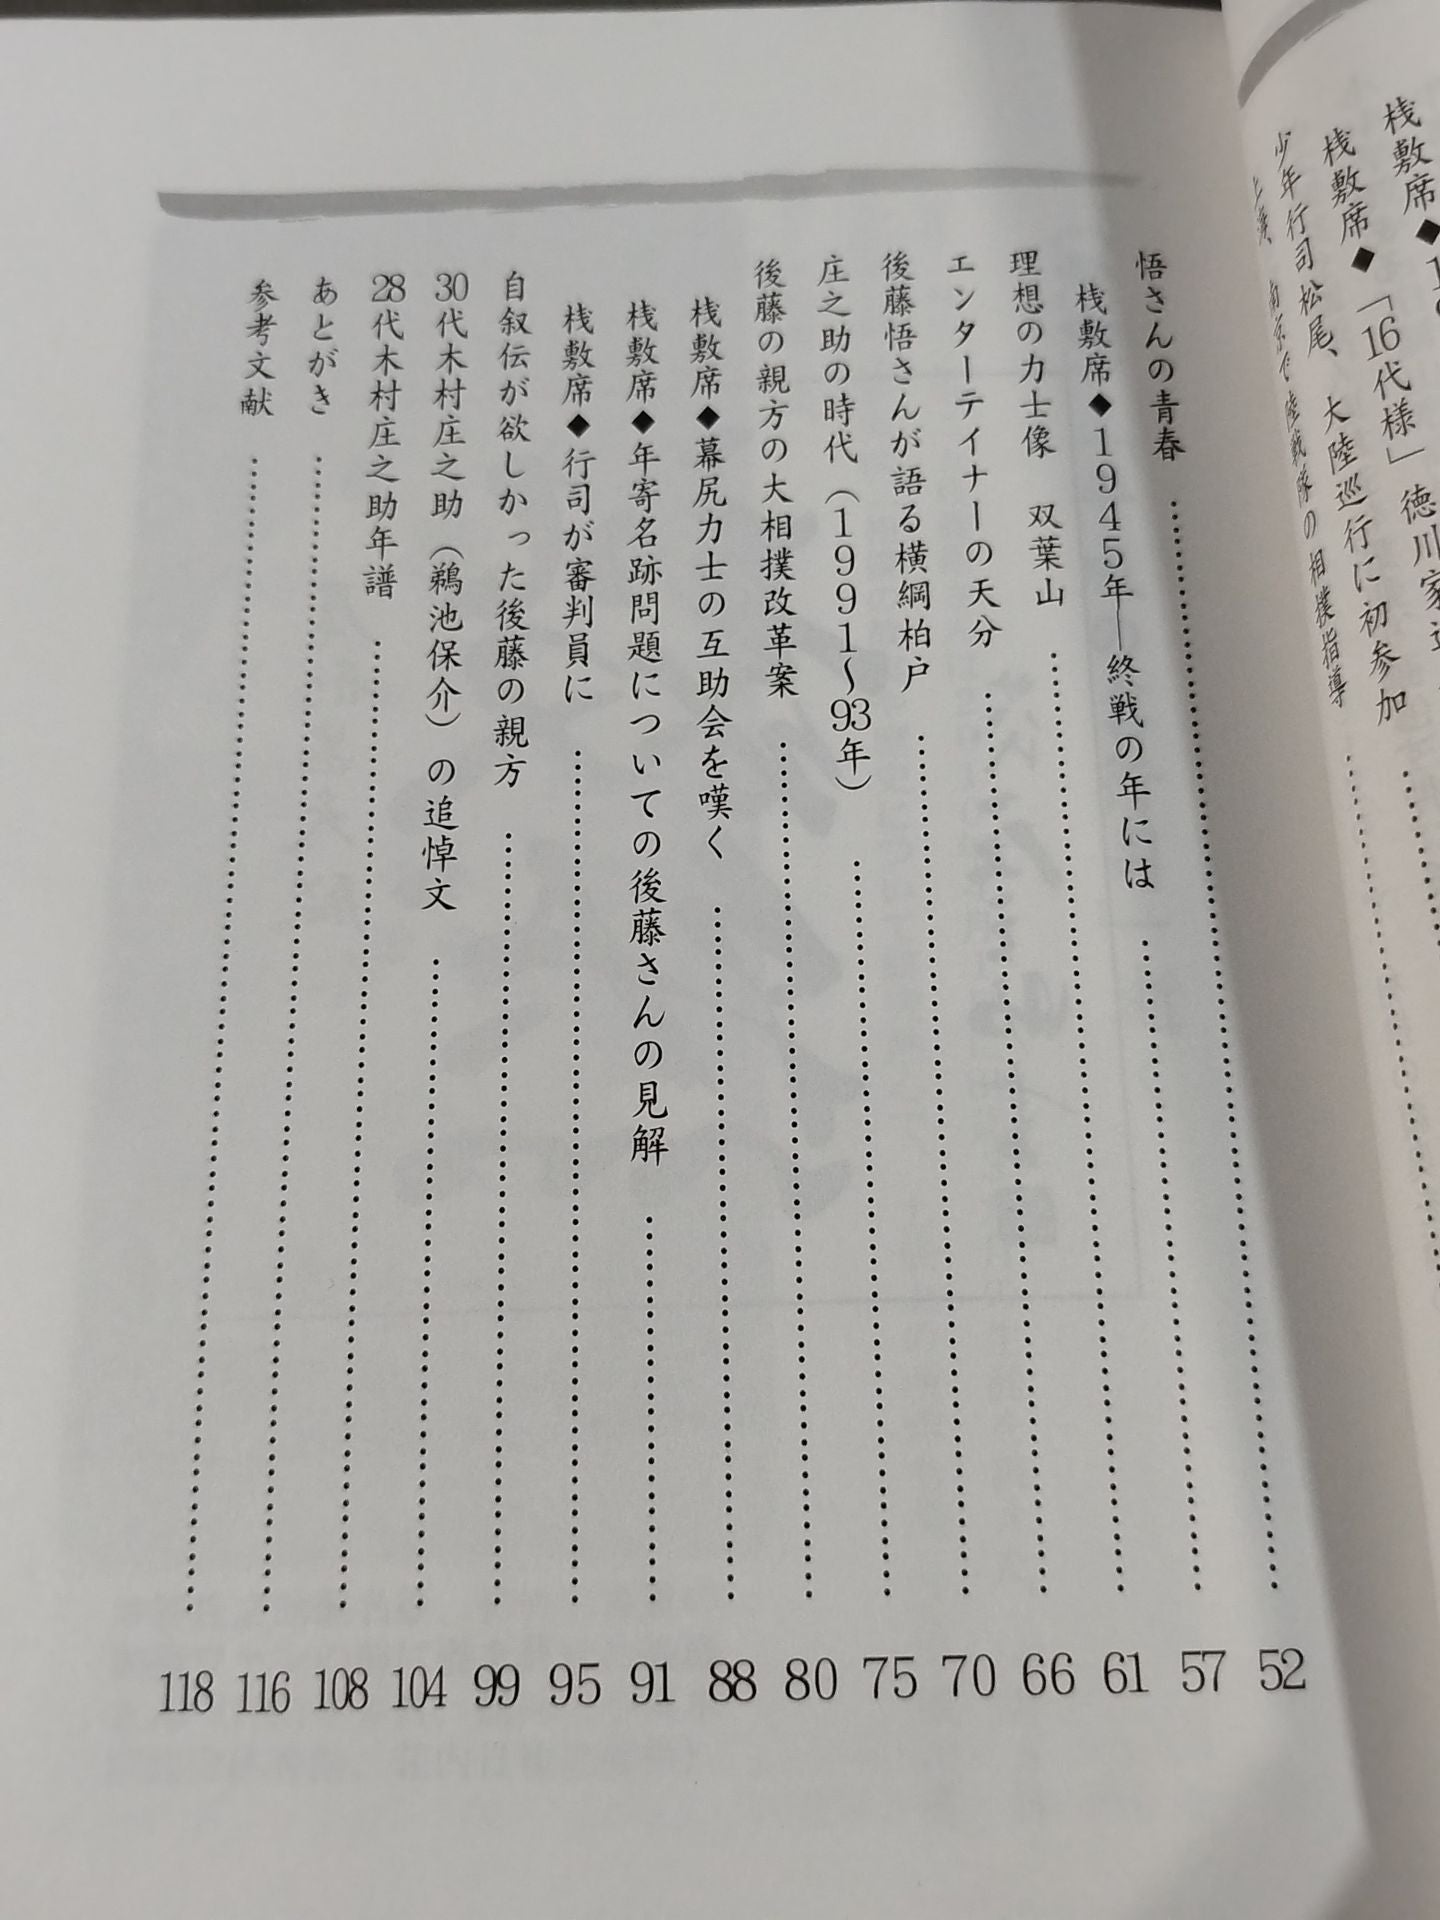 桟敷席◆
桟敷席◆「16代様」徳川家
少年行司松尾、大陸巡行に初参加
上海、南京で陸戦隊の相撲指導
悟さんの青春 52
桟敷席◆1945年―終戦の年には 57
理想の力士像 双葉山 61
エンターテイナーの天分 66
後藤悟さんが語る横綱柏戸 70
庄之助の時代（1991〜93年） 75
後藤の親方の大相撲改革案 80
桟敷席◆幕尻力士の互助会を嘆く 88
桟敷席◆年寄名跡問題についての後藤さんの見解 91
桟敷席◆行司が審判員に 95
自叙伝が欲しかった後藤の親方 99
30代木村庄之助（鵜池保介）の追悼文 104
28代木村庄之助年譜 108
あとがき 116
参考文献 118